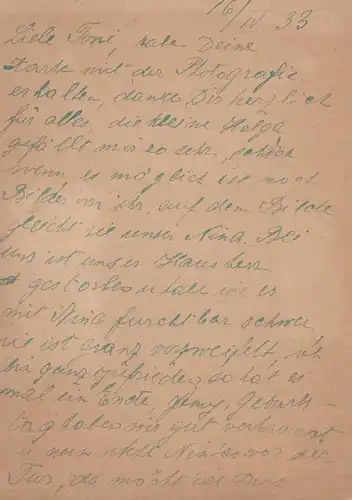 16/IV 33
Liebe Toni, habe Deine
Karte mit der Photografie
erhalten, danke Dir herzlich
für alles, die kleine Helga
gefällt mir so sehr, schick
wenn es möglich ist noch
Bilder von ihr, auf dem Bilde
gleicht sie unser Nina. Bei
uns ist unser Hausherr
gestorben u habe wie es
mit Nina furchtbar schwer
sie ist ganz verzweifelt, ich
bin ganz zufrieden so hat es
mal ein Ende genug, Geburts-
tag haben wir gut verbracht
u nun steht vor der
Tür, da möcht